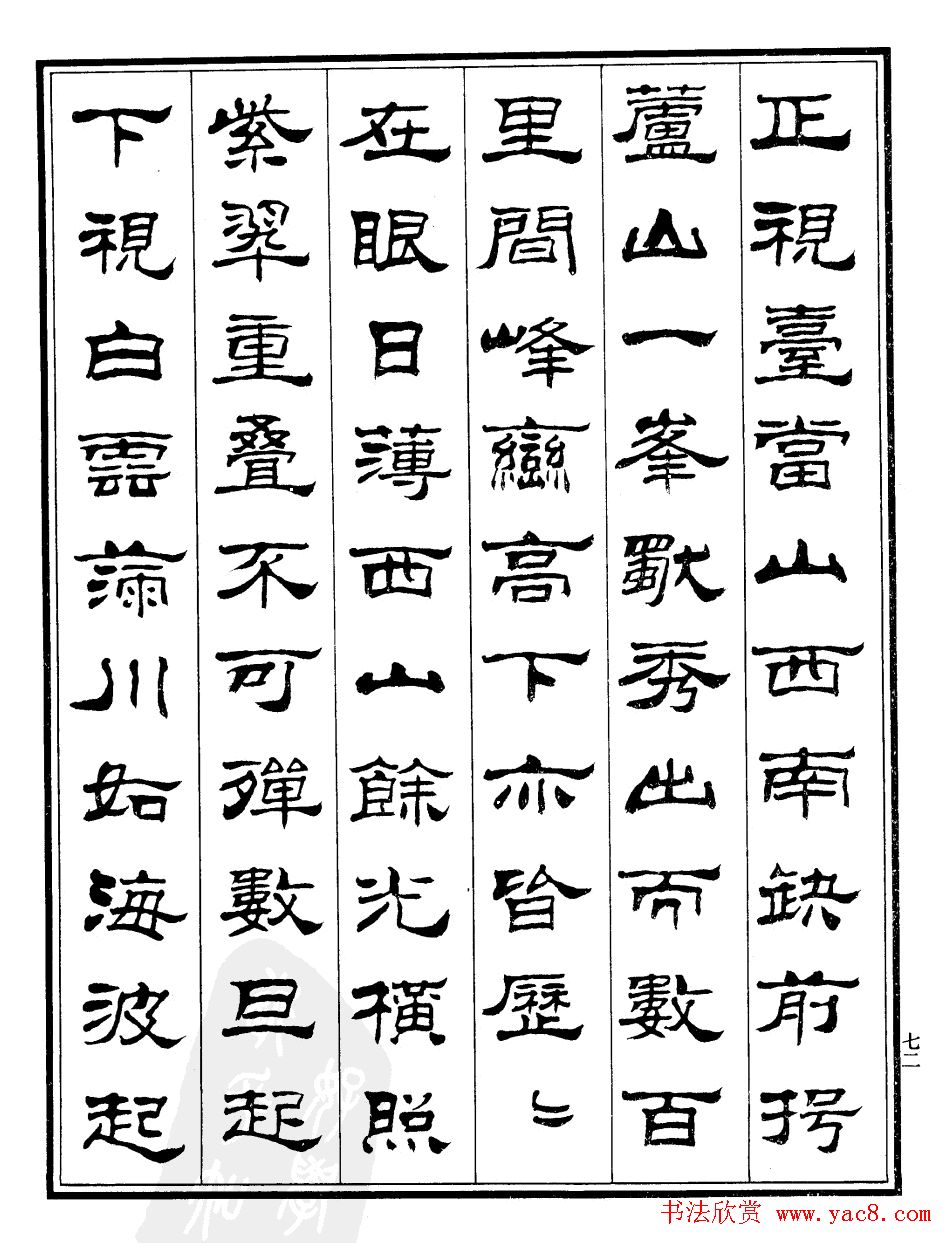 正視臺當山西南缺前揖
蘆山一峯獨秀出而數百
里間峰巒高下亦皆歷〻
在眼日薄西山餘光橫照
紫翠重叠不可殫數旦起
下視白雲滿川如海波起
七二
书法欣赏 www.yac8.com